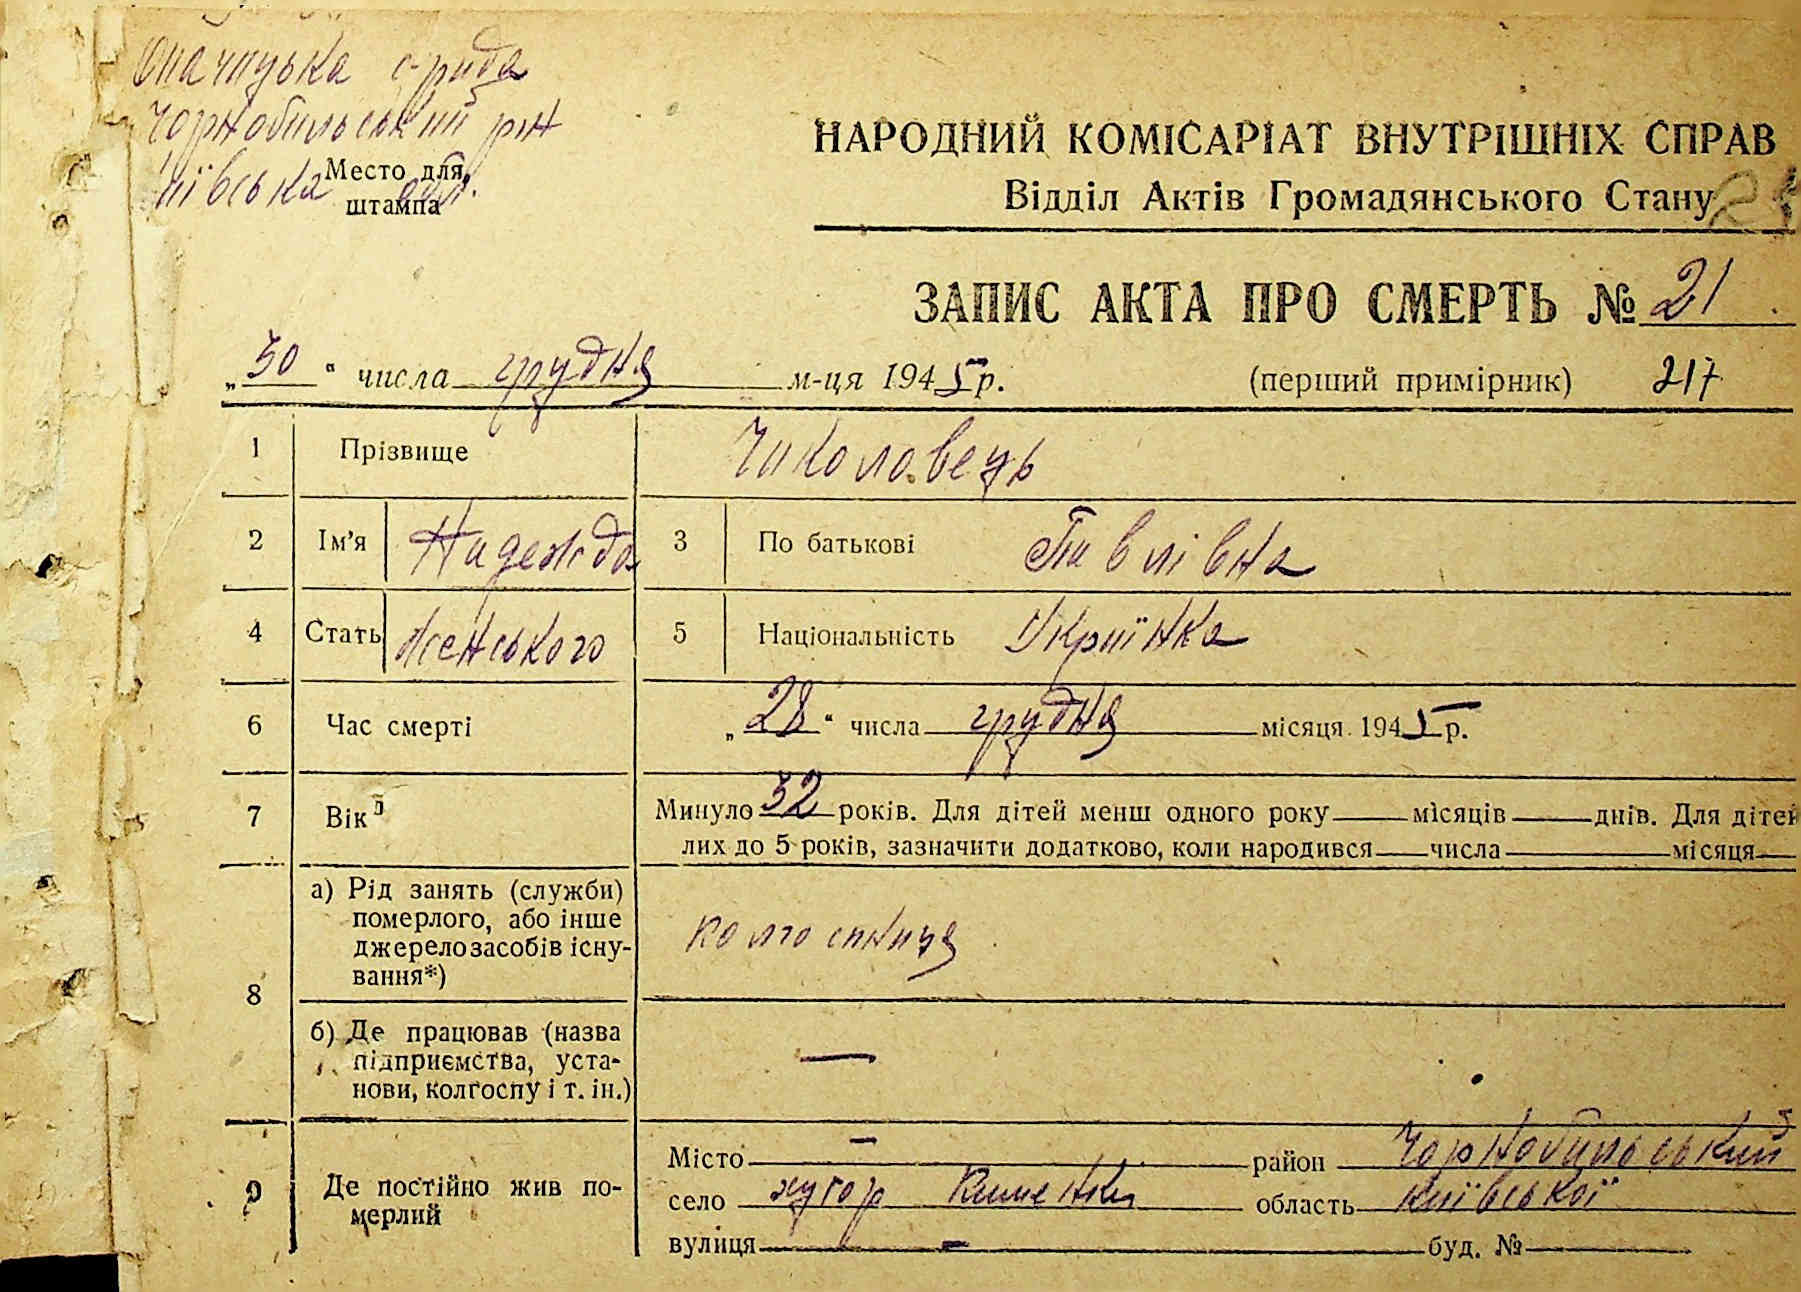 Опачицька с-рада
Чорнобильський р-н
Київська обл.
Место для
штампа
НАРОДНИЙ КОМІСАРІАТ ВНУТРІШНІХ СПРАВ
Відділ Актів Громадянського Стану
ЗАПИС АКТА ПРО СМЕРТЬ № 21
„30“ числа грудня м-ця 1945 р. (перший примірник) 217
1 Прізвище Чиколовець
2 Ім'я Надежда 3 По батькові Павлівна
4 Стать Женського 5 Національність Українка
6 Час смерті „28“ числа грудня місяця 1945 р.
7 Вік Минуло 32 років. Для дітей менш одного року місяців днів. Для дітей
лих до 5 років, зазначити додатково, коли народився числа місяця
8 а) Рід занять (служби)
померлого, або інше
джерело засобів існу-
вання*) колгоспниця
б) Де працював (назва
підприємства, уста-
нови, колгоспу і т. ін.) —
9 Де постійно жив по-
мерлий
Місто — район Чорнобильський
село хутор область Київської
вулиця — буд. №